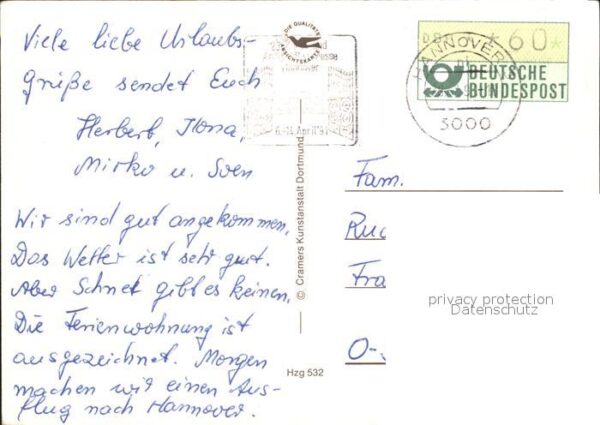 Viele liebe Urlaubs-
grüße sendet Euch
Herbert, Ilona,
Mirko u. Sven
Wir sind gut angekommen.
Das Wetter ist sehr gut.
Aber Schnee gibt es keinen.
Die Ferienwohnung ist
ausgezeichnet. Morgen
machen wir einen Aus-
flug nach Hannover.
DIE QUALITÄTS
ANSICHTSKARTE
© Cramers Kunstanstalt Dortmund
Hzg 532
HANNOVER
3000
*60*
DEUTSCHE
BUNDESPOST
Fam.
Ruc
Fra
O-
privacy protection
Datenschutz